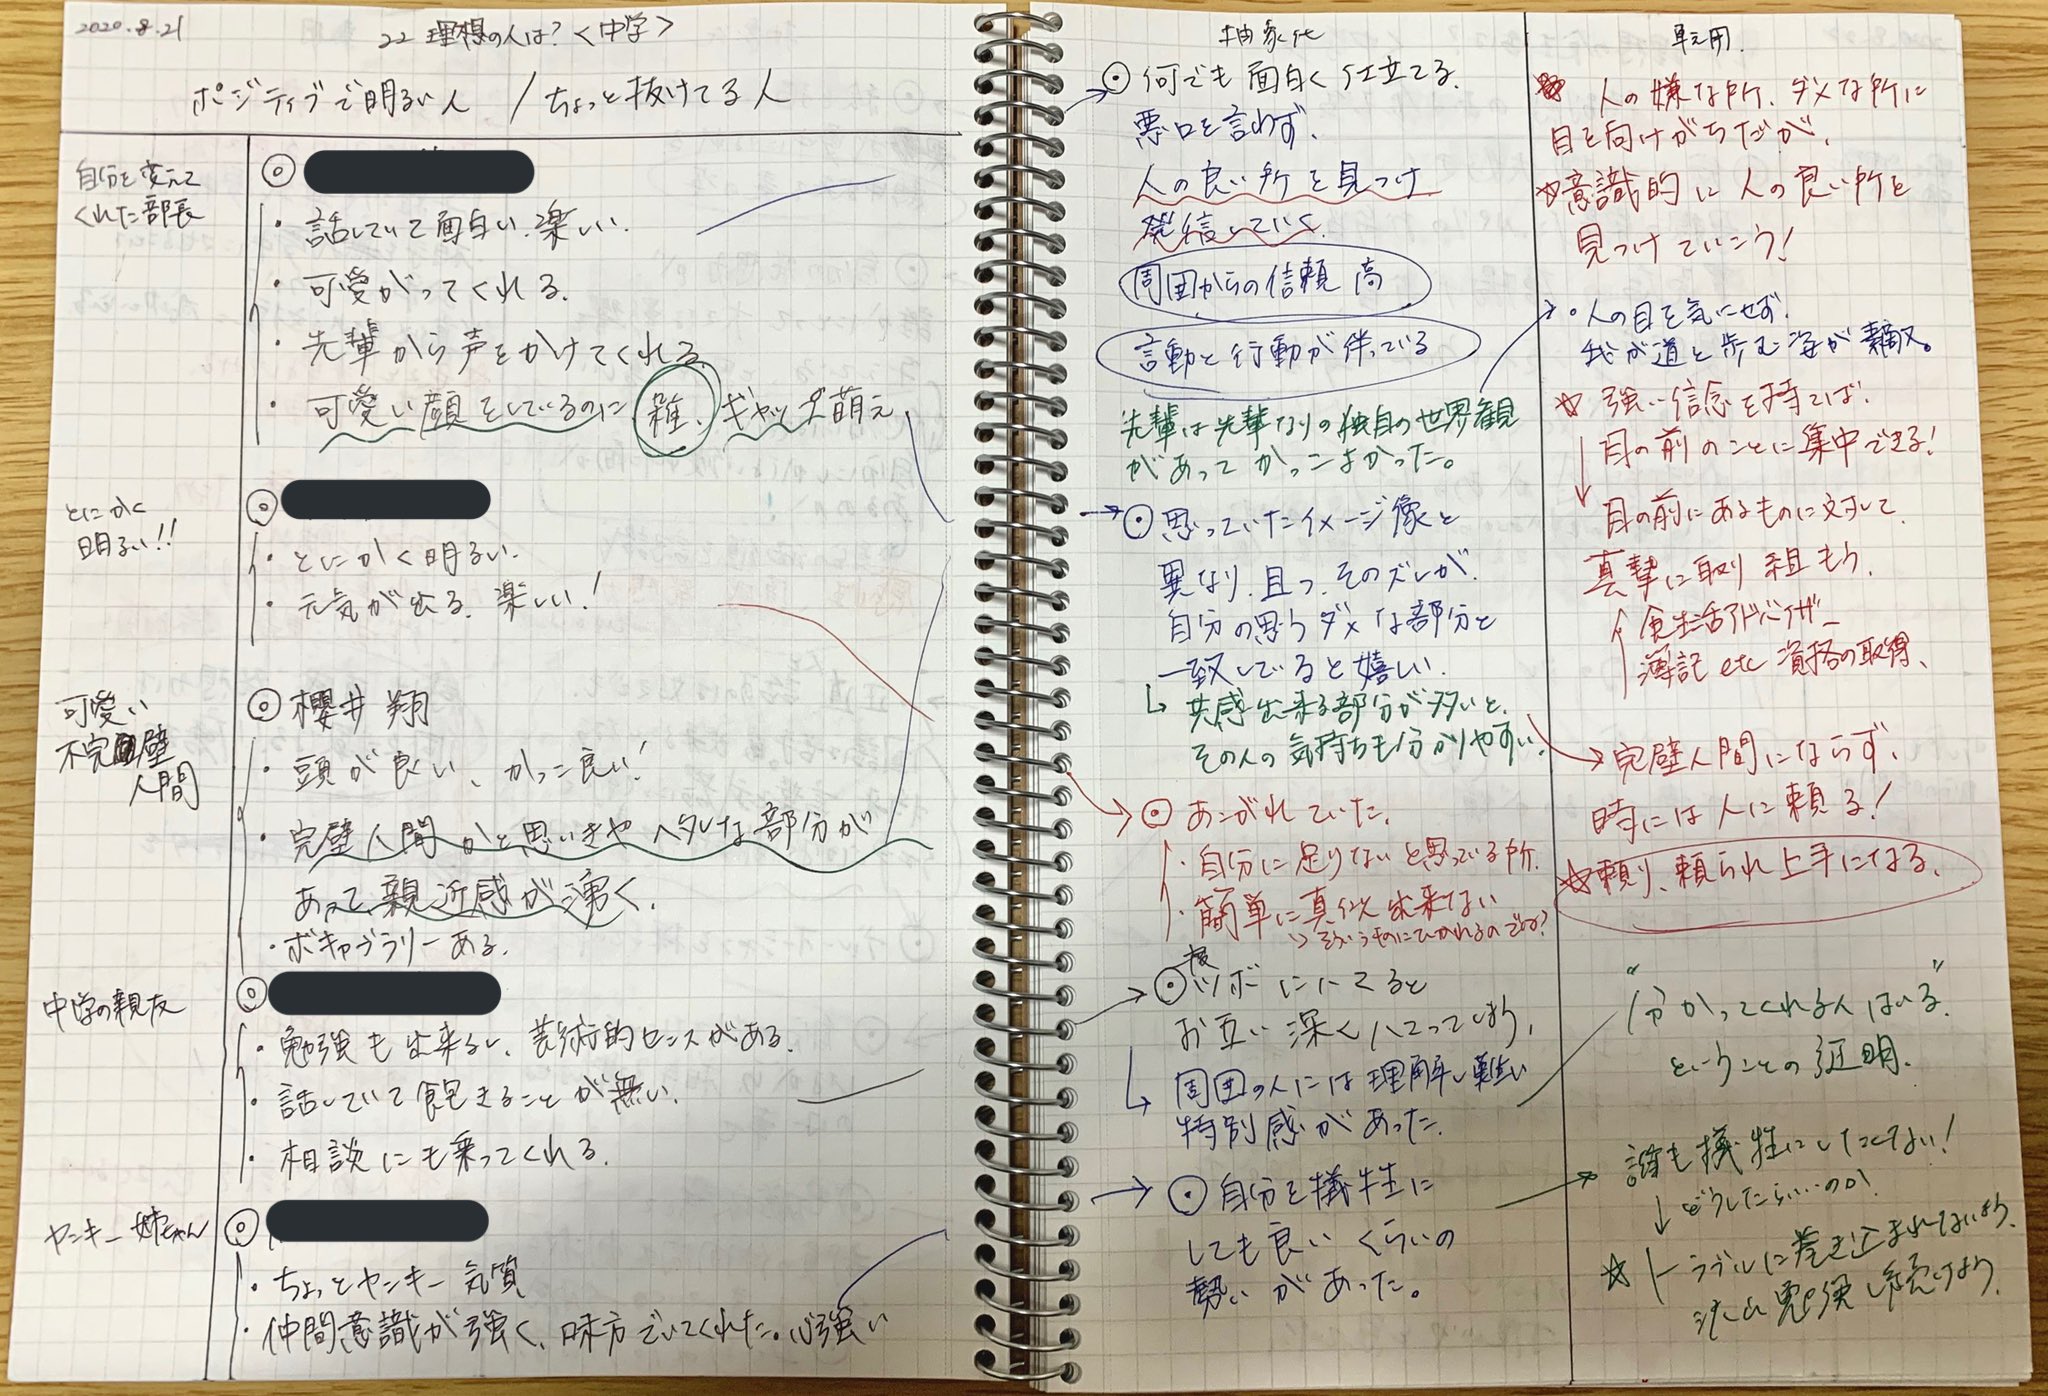 2020.8.21
22 理想の人は?<中学>
ポジティブで明るい人 / ちょっと抜けてる人
自分を変えて
くれた部長
・話していて面白い、楽しい。
・可愛がってくれる。
・先輩から声をかけてくれる
・可愛い顔をしているのに雑、ギャップ萌え
とにかく
明るい!!
・とにかく明るい。
・元気が出る、楽しい!
可愛い
不完璧
人間
櫻井 翔
・頭が良い、かっこ良い!
・完璧人間かと思いきやヘタレな部分が
あって、親近感が湧く。
・ボキャブラリーある。
中学の親友
・勉強も出来るし、芸術的センスがある。
・話していて飽きることが無い。
・相談にも乗ってくれる。
ヤンキー姉ちゃん
・ちょっとヤンキー気質
・仲間意識が強く、味方でいてくれた。心強い
抽象化
何でも面白く仕立てる。
悪口を言わず、
人の良い所を見つけ
発信していく
周囲からの信頼 高
言動と行動が伴っている
先輩は先輩なりの独自の世界観
があってかっこよかった。
思っていたイメージ像と
異なり、且つ、そのズレが、
自分の思うダメな部分と
一致してると嬉しい。
↳ 共感出来る部分が多いと、
その人の気持ちも分かりやすい。
あこがれていた。
・自分に足りないと思っている所。
・簡単に真似出来ない
↳そういうものにひかれるのでは?
ツボににてると
お互い深くハマってしまう。
↳ 周囲の人には理解し難い
特別感があった。
自分を犠牲に
しても良いくらいの
勢いがあった。
転用
人の嫌な所、ダメな所に
目を向けがちだが、
☆意識的に人の良い所を
見つけていこう!
・人の目を気にせず、
我が道を歩む姿が素敵。
☆ 強い信念を持てば、
目の前のことに集中できる!
目の前にあるものに対して、
真摯に取り組もう。
食生活アドバイザー
簿記 etc 資格の取得、
完璧人間にならず、
時には人に頼る!
☆頼り、頼られ上手になる。
"分かってくれる人はいる"
ということの証明。
誰も犠牲にしたくない!
↓どうしたらいいのか!
☆トラブルに巻き込まれないよう、
法の勉強し続けよう。